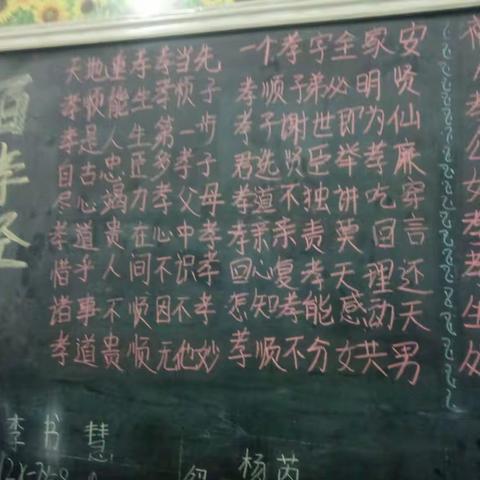 百孝经
天地重孝孝当先 一个孝字全家安
孝顺能生孝顺子 孝顺子弟必明贤
孝是人生第一步 孝子谢世即为仙
自古忠臣多孝子 君选贤臣举孝廉
尽心竭力孝父母 孝道不独讲吃穿
孝道贵在心中孝 孝亲亲责莫回言
惜乎人间不识孝 回心复孝天理还
诸事不顺因不孝 怎知孝能感动天
孝道贵顺无他妙 孝顺不分女共男
李书慧
杨芮